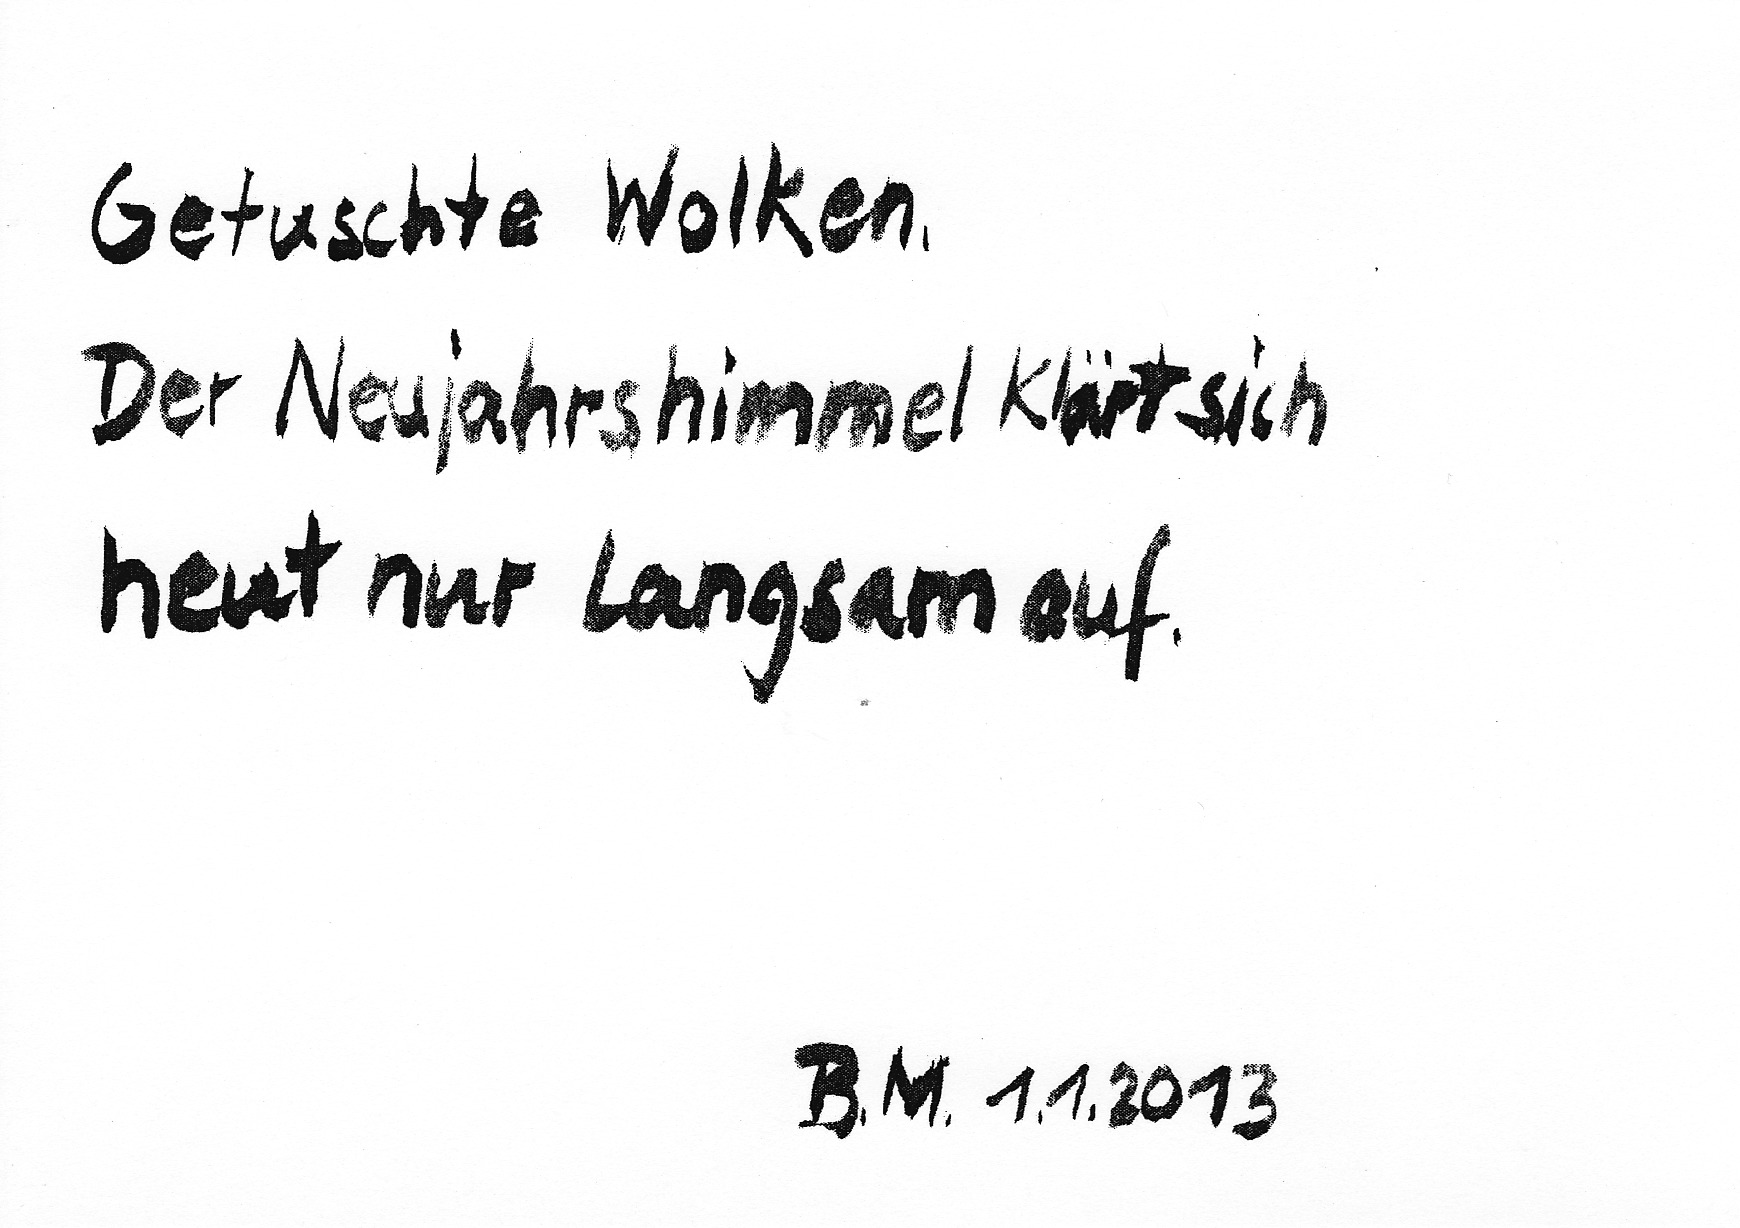 Getuschte Wolken.
Der Neujahrshimmel klärt sich
heut nur langsam auf.
B.M. 1.1.2013